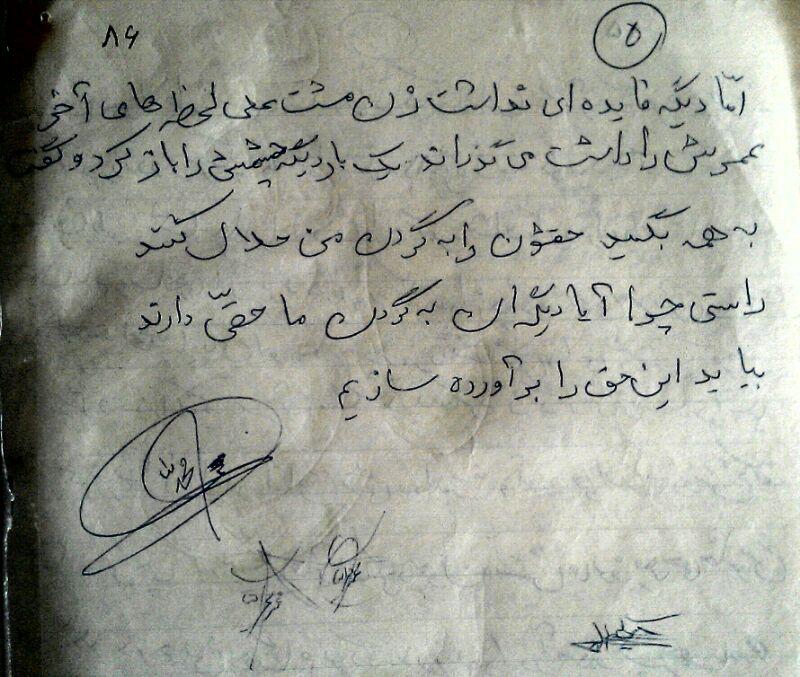 ۵
۸۶
امّا دیگه فایده ای نداشت زن مشت علی لحظه های آخر
عمرش را داشت می گذراند یک بار دیگه چشمش را باز کرد و گفت
به همه بگید حقشون را به گردن من حلال کنند
راستی چرا آیا دیگران به گردن ما حقّی دارند
بیاید این حق را برآورده سازیم